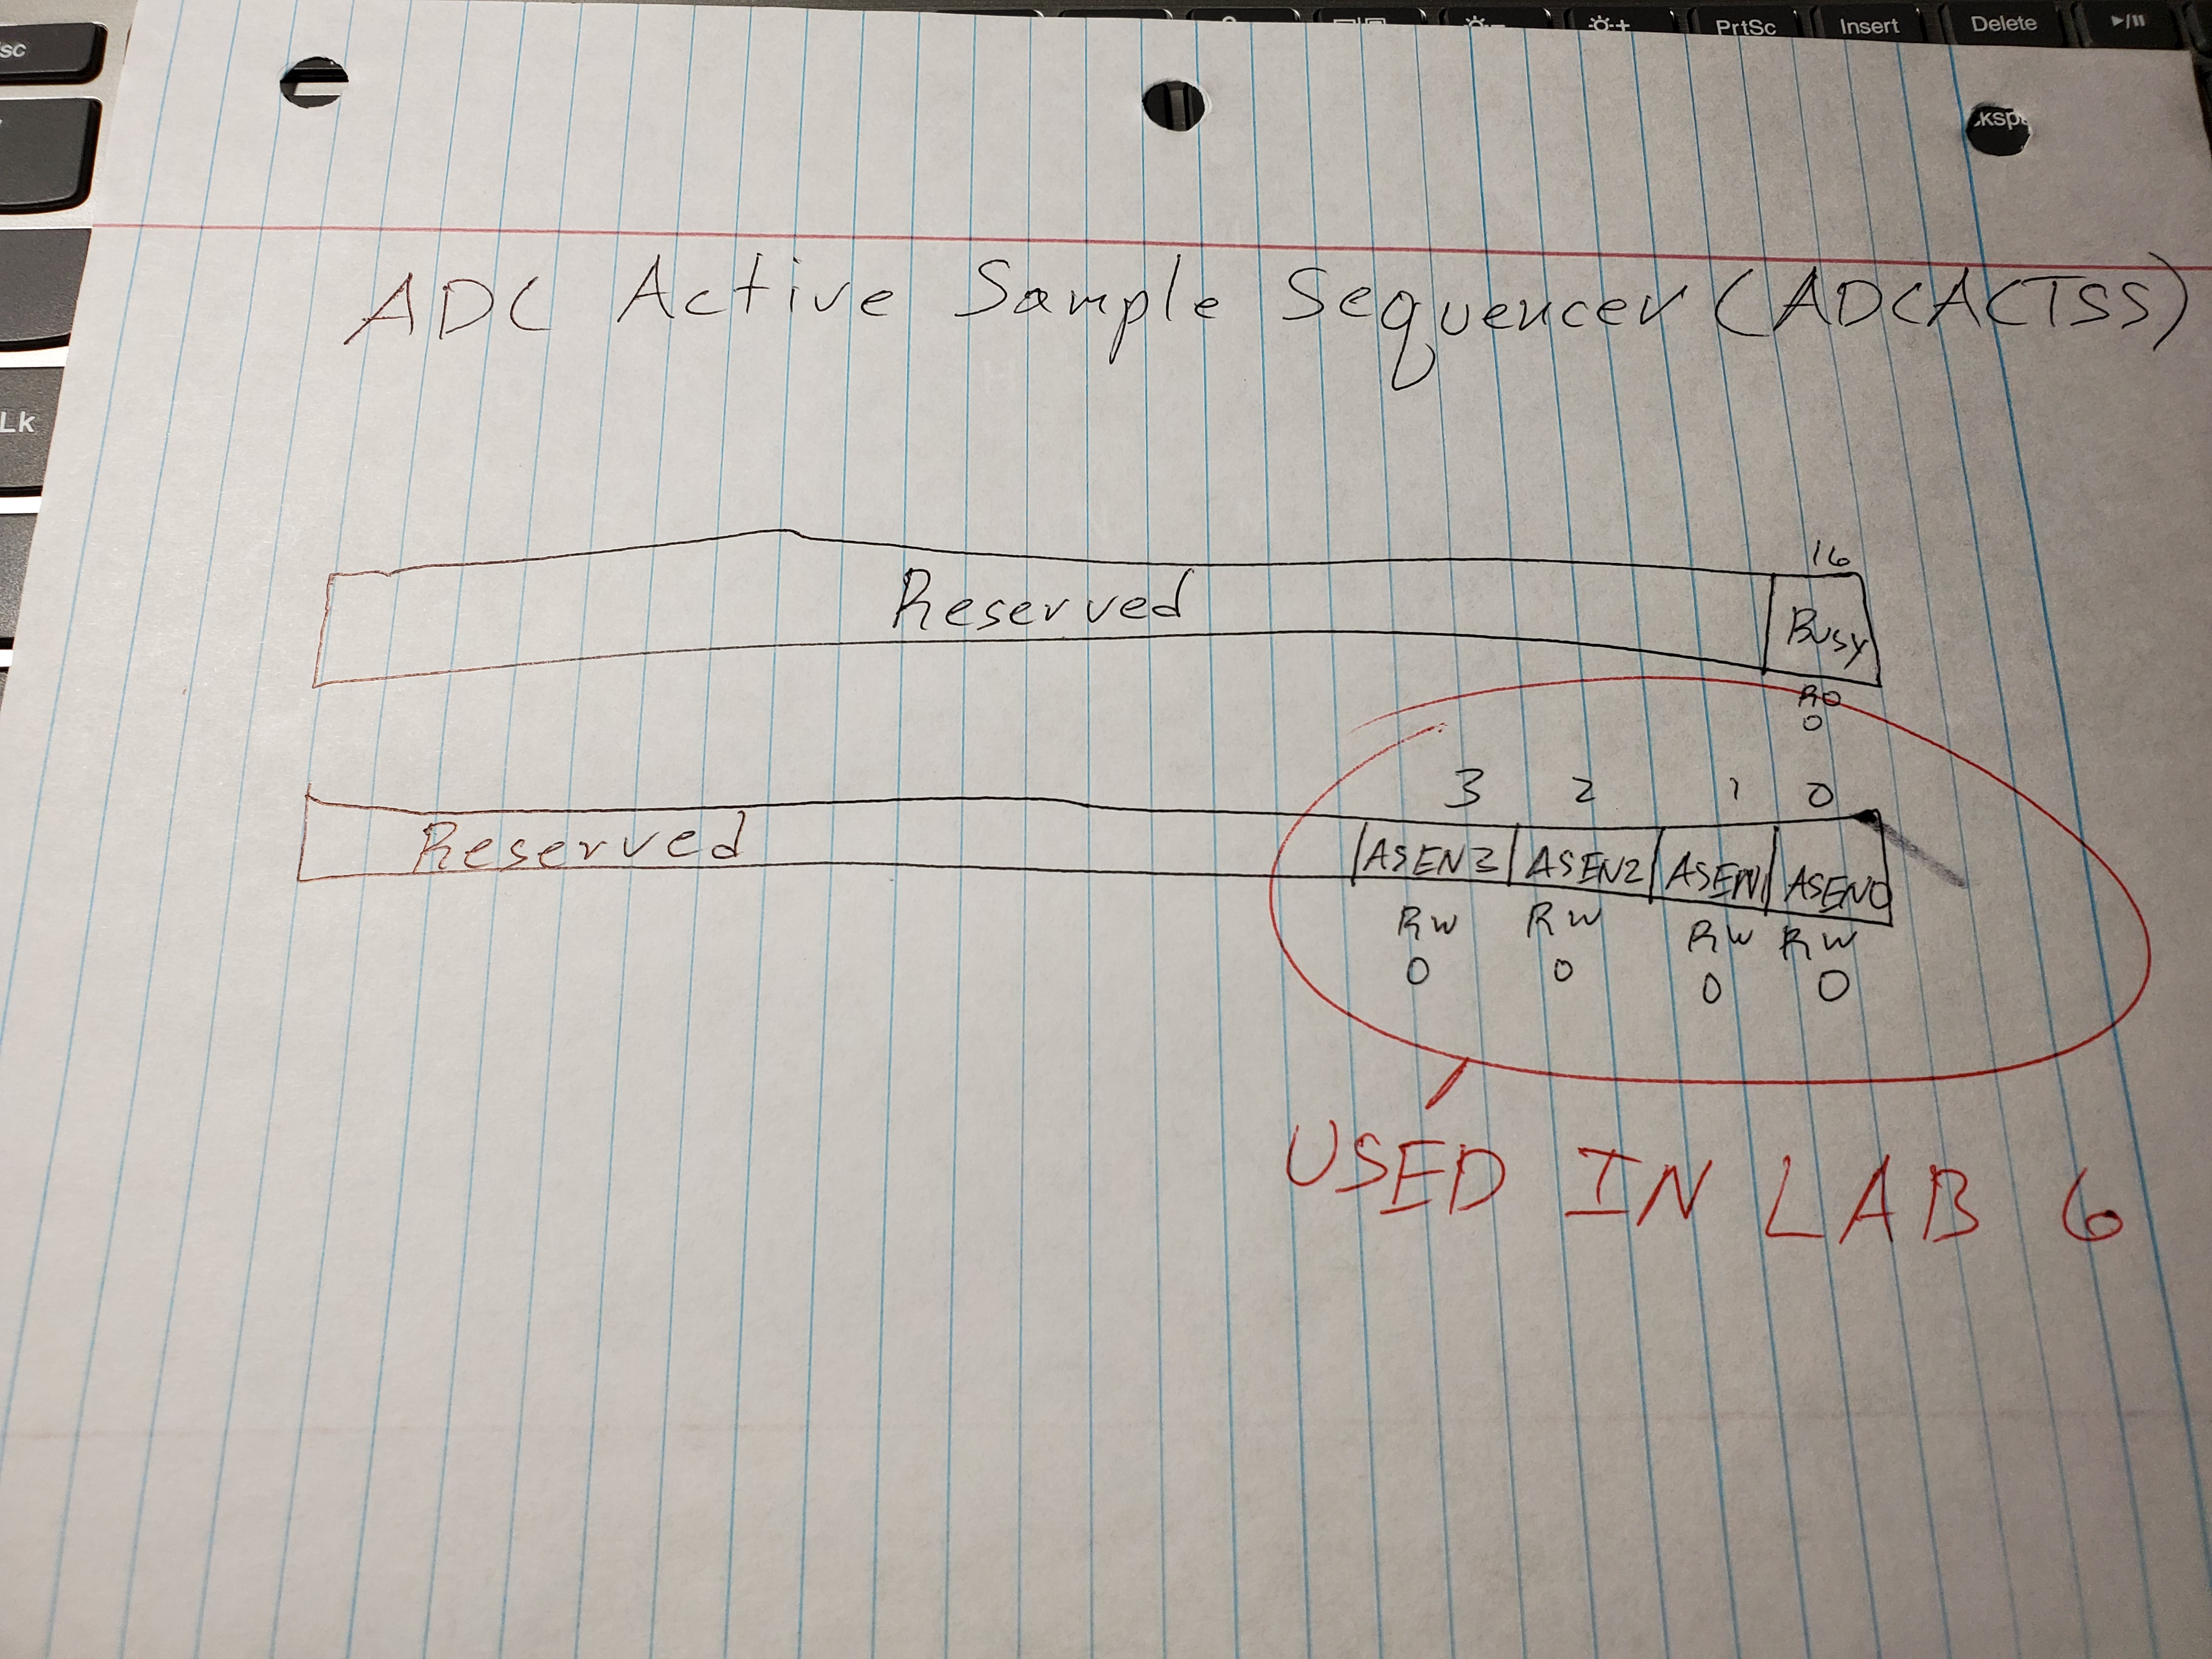 PrtSc Insert Delete
sc
ADC Active Sample Sequencer (ADCACTSS)
Lk
16
Reserved Busy
RO
0
3 2 1 0
Reserved ASEN3 ASEN2 ASEN1 ASEN0
RW RW RW RW
0 0 0 0
USED IN LAB 6